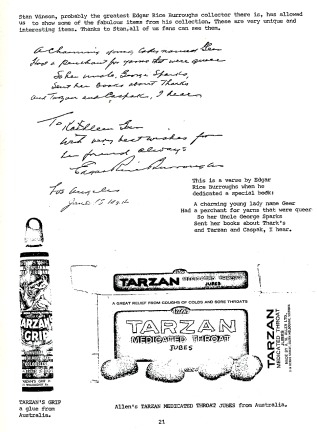 Stan Vinson, probably the greatest Edgar Rice Burroughs collector there is, has allowed
us to show some of the fabulous items from his collection. These are very unique and
interesting items. Thanks to Stan, all of us fans can see them.
A charming young lady named Geer
Had a penchant for yarns that were queer
So her uncle, George Sparks,
Sent her books about Tharks
and Tarzan and Caspak, I hear.
To Kathleen Geer
With very best wishes from
her friend always
Edgar Rice Burroughs
Los Angeles
June 15
This is a verse by Edgar
Rice Burroughs when he
dedicated a special book:
A charming young lady name Geer
Had a perchant for yarns that were queer
So her Uncle George Sparks
Sent her books about Thark's
and Tarzan and Caspak, I hear.
TARZAN MEDICATED THROAT
JUBES
A GREAT RELIEF FROM COUGHS OF COLDS AND SORE THROATS
TARZAN
MEDICATED THROAT
JUBES
TARZAN
MEDICATED THROAT
JUBES
TARZAN'S
GRIP
TARZAN'S GRIP
a glue from
Australia.
Allen's TARZAN MEDICATED THROAT JUBES from Australia.
21